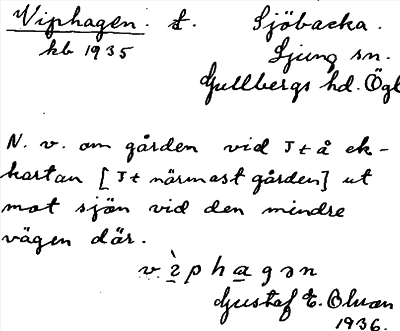 Viphagen. t. Sjöbacka.
kb 1935 Ljung sn.
Gullbergs hd. Ögl
N. v. om gården vid Jt å ek-
kartan [Jt närmast gården] ut
mot sjön vid den mindre
vägen där.
vìphagən
Gustaf E. Olson
1936.